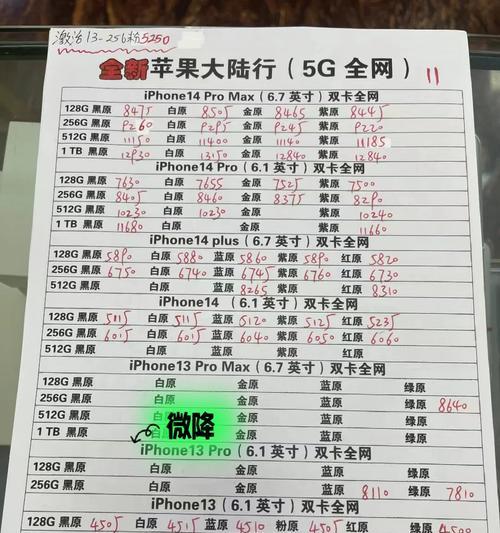 激活13-256粉5250
全新苹果大陆行（5G 全网） 11
iPhone14 Pro Max（6.7 英寸）双卡全网
128G 黑原 8475 白原 8505 金原 8465 紫原 8445
256G 黑原 9260 白原 9295 金原 9245 紫原 9220
512G 黑原 11150 白原 11400 金原 11140 紫原 11185
1 TB 黑原 12930 白原 13150 金原 12840 紫原 12840
iPhone14 Pro（6.1 英寸）双卡全网
128G 黑原 7630 白原 7655 金原 7525 紫原 7500
256G 黑原 8405 白原 8460 金原 8375 紫原 8290
512G 黑原 10230 白原 10230 金原 紫原 10240
1 TB 黑原 11680 白原 金原 紫原 11660
iPhone14 plus（6.7 英寸）双卡全网
128G 黑原 5890 白原 5880 蓝原 5860 紫原 5890 红原 5820
256G 黑原 6750 白原 6740 蓝原 6745 紫原 6760 红原 6730
512G 黑原 白原 蓝原 8265 紫原 红原 8310
iPhone14 （6.1 英寸）双卡全网
128G 黑原 5115 白原 5115 蓝原 5120 紫原 5125 红原 5235
256G 黑原 6015 白原 6015 蓝原 6040 紫原 6050 红原 6060
512G 黑原 白原 蓝原 紫原 红原
iPhone13 Pro Max（6.7 英寸）双卡全网
128G 黑原 白原 金原 蓝原 绿原
256G 黑原 白原 金原 蓝原 绿原 8640
512G 黑原 白原 金原 蓝原 绿原
1 TB 黑原 白原 微降 金原 蓝原 绿原
iPhone13 Pro（6.1 英寸）双卡全网
128G 黑原 白原 金原 蓝原 绿原
256G 黑原 白原 金原 蓝原 8110 绿原 7810
iPhone13（6.1 英寸）双卡全网
128G 黑原 4505 白原 4515 蓝原 4510 粉原 4505 红原 绿原 4500